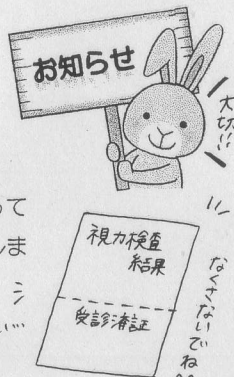 お知らせ
大切!!
って
しま
シ
視力検査
結果
受診済証
なくさないでね